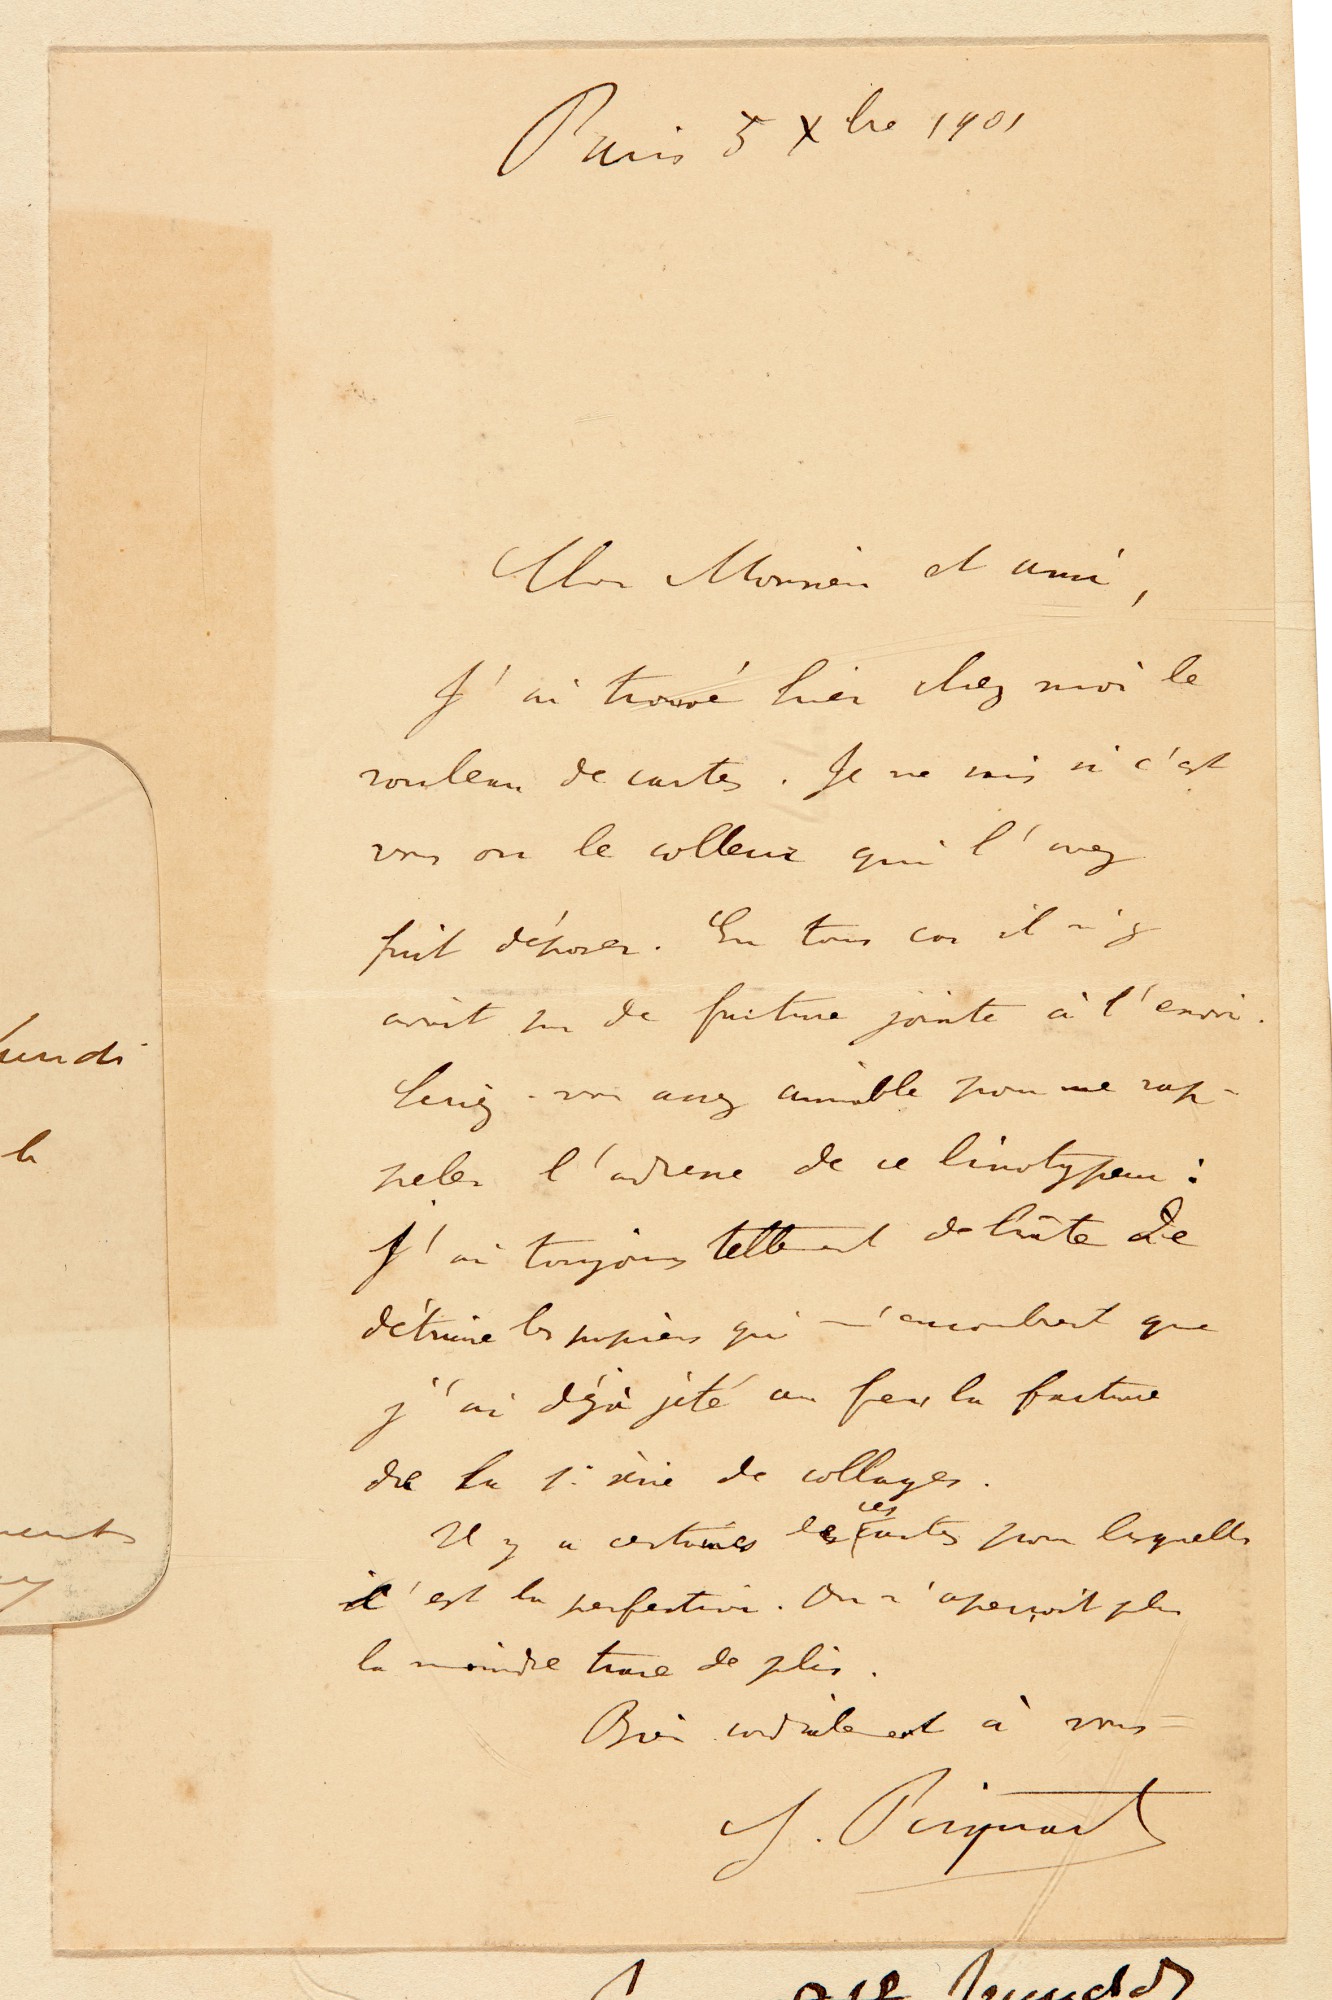 Paris 5 Xbre 1901
Cher Monsieur et ami,
J'ai trouvé hier chez moi le
rouleau de cartes. Je ne sais si c'est
vous ou le colleur qui l'avez
fait déposer. En tous cas il n'y
avait pas de facture jointe à l'envoi.
Seriez-vous assez aimable pour me rap-
peler l'adresse de ce linotypeur :
J'ai toujours tellement de hâte de
détruire les papiers qui m'encombrent que
j'ai déjà jeté au feu la facture
de la 1e série de collages.
Il y a certaines de ces cartes pour lesquelles
c'est la perfection. On n'aperçoit plus
la moindre trace de plis.
Bien cordialement à vous
G. Picquart
lundi
la